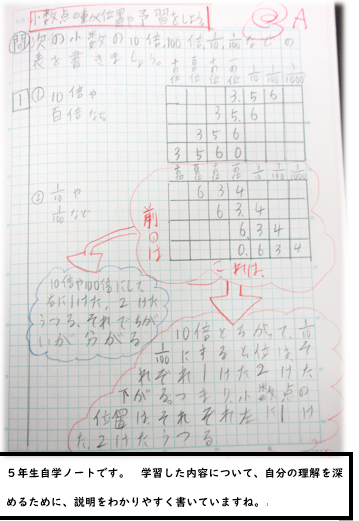 小数点の動く位置や予習をしよう
A
問 次の小数の10倍、100倍、1/10、1/100などの
表を書きましょう。
千の位 百の位 十の位 一の位 1/10 1/100 1/1000
1 ① 10倍や
百倍など
3. 5 6
3 5. 6
3 5 6
3 5 6 0
千の位 百の位 十の位 一の位 1/10 1/100 1/1000
② 1/10や
1/100など
6 3 4
6 3. 4
6. 3 4
0. 6 3 4
前のは
これは、
10倍や100倍にして
右に1けた、2けた
うつる、それでちが
いが分がる
10倍とちがって、1/10
1/100にすると位は、そ
れぞれ1けた2けた
下がる。つまり、小数点の
位置は、それぞれ左に1け
た、2けたうつる
5年生自学ノートです。 学習した内容について、自分の理解を深
めるために、説明をわかりやすく書いていますね。